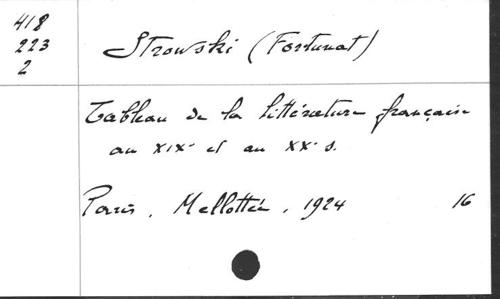 418
223
2
Strowski (Fortunat)
Tableau de la littérature française
au XIXe et au XXe s.
Paris, Mellottée, 1924 16